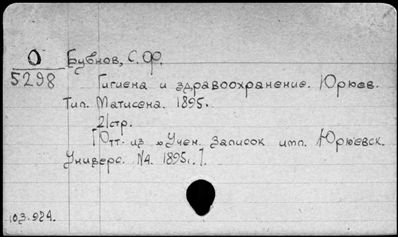 О
5298
Бубнов, С. Ф.
Гигиена и здравоохранение. Юрьев.
Тип. Матисена. 1895.
21стр.
[Отт. из "Учен. Записок имп. Юрьевск.
Универс. №4. 1895г.].
103.924.